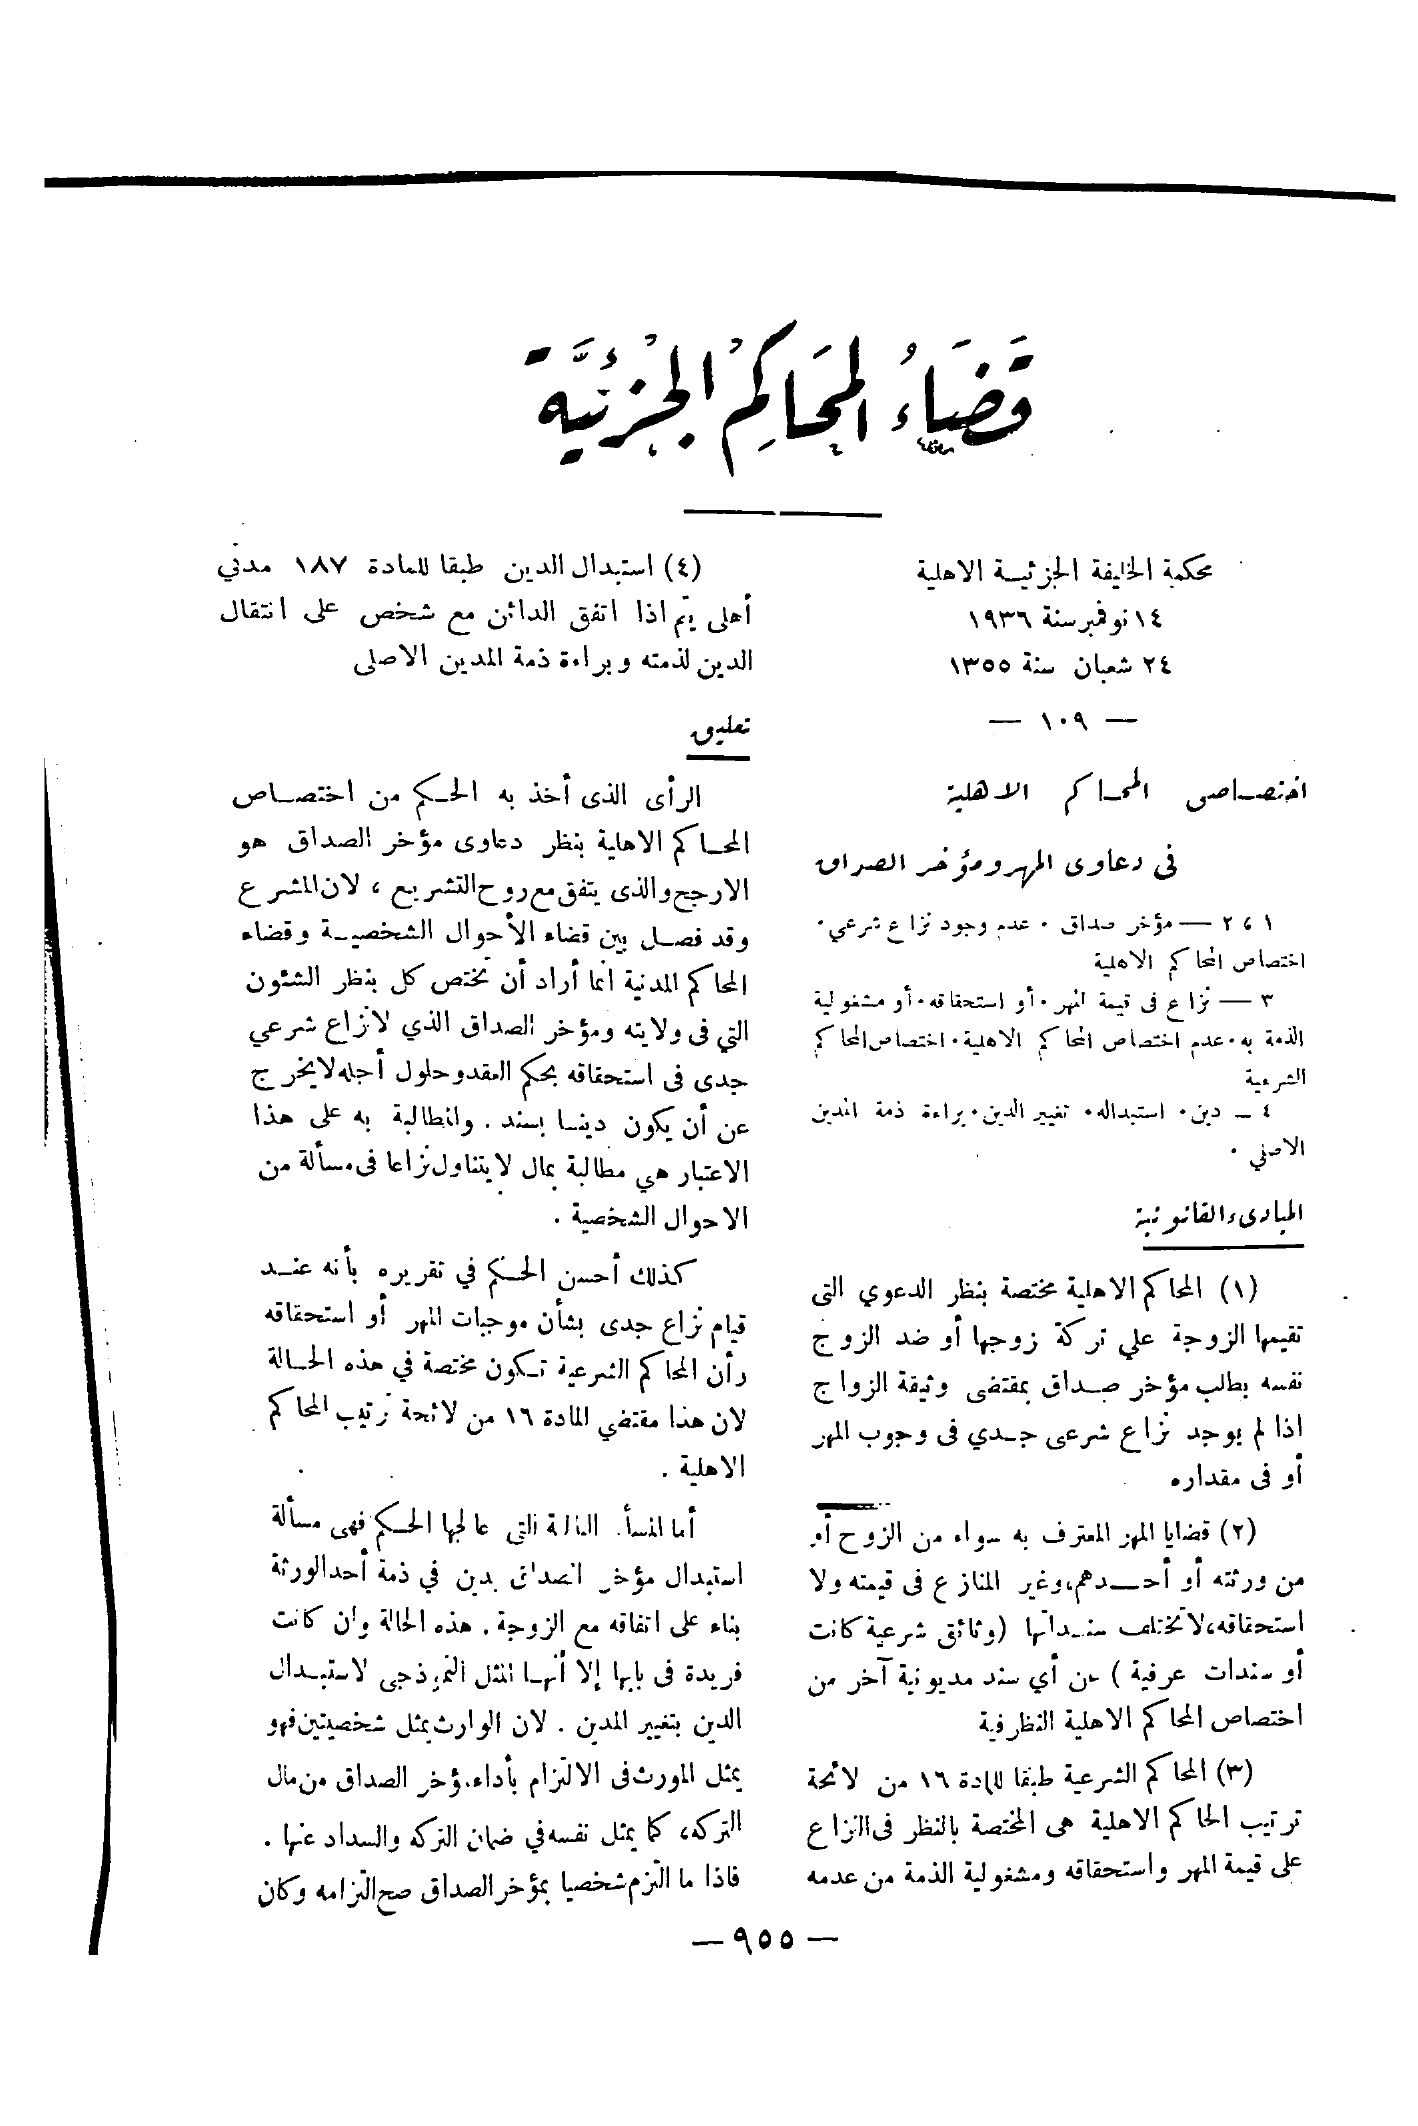 قَضَاءُ المحَاكِمُ الجُزئِيَّة
محكمة الخليفة الجزئية الاهلية
١٤ نوفمبر سنة ١٩٣٦
٢٤ شعبان سنة ١٣٥٥
— ١٠٩ —
اختصاص المحاكم الاهلية
فى دعاوى المهر ومؤخر الصداق
١ ، ٢ — مؤخر صداق . عدم وجود نزاع شرعي .
اختصاص المحاكم الاهلية
٣ — نزاع فى قيمة المهر . أو استحقاقه . أو مشغولية
الذمة به . عدم اختصاص المحاكم الاهلية . اختصاص المحاكم
الشرعية
٤ — دين . استبداله . تغيير الدين . براءة ذمة المدين
الاصلي .
المبادىء القانونية
(١) المحاكم الاهلية مختصة بنظر الدعوي التى
تقيمها الزوجة علي تركة زوجها أو ضد الزوج
نفسه بطلب مؤخر صداق بمقتضى وثيقة الزواج
اذا لم يوجد نزاع شرعى جدي فى وجوب المهر
أو فى مقداره
(٢) قضايا المهر المعترف به سواء من الزوح أو
من ورثته أو أحدهم ، وغير المنازع فى قيمته ولا
استحقاقه ، لا تختلف سنداتها (وثائق شرعية كانت
أو سندات عرفية) عن أي سند مديونية آخر من
اختصاص المحاكم الاهلية النظر فية
(٣) المحاكم الشرعية طبقا للمادة ١٦ من لائحة
ترتيب الحاكم الاهلية هى المختصة بالنظر فى النزاع
على قيمة المهر واستحقاقه ومشغولية الذمة من عدمه
(٤) استبدال الدين طبقا للمادة ١٨٧ مدني
أهلى يتم اذا اتفق الدائن مع شخص على انتقال
الدين لذمته وبراءة ذمة المدين الاصلى
تعليق
الرأى الذى أخذ به الحكم من اختصاص
المحاكم الاهلية بنظر دعاوى مؤخر الصداق هو
الارجح والذى يتفق مع روح التشريع ، لان المشرع
وقد فصل بين قضاء الأحوال الشخصية وقضاء
المحاكم المدنية انما أراد أن تختص كل بنظر الشئون
التي فى ولايته ومؤخر الصداق الذي لا نزاع شرعي
جدى فى استحقاقه بحكم العقد وحلول أجله لا يخرج
عن أن يكون دينا بسند . والمطالبة به على هذا
الاعتبار هي مطالبة بمال لا يتناول نزاعا فى مسألة من
الاحوال الشخصية .
كذلك أحسن الحكم في تقريره بأنه عند
قيام نزاع جدى بشأن موجبات المهر أو استحقاقه
وأن المحاكم الشرعية تكون مختصة في هذه الحالة
لان هذا مقتضي المادة ١٦ من لائحة ترتيب المحاكم
الاهلية .
أما المسألة الثالثة التى عالجها الحكم فهى مسألة
استبدال مؤخر الصداق بدين في ذمة أحد الورثة
بناء على اتفاقه مع الزوجة . هذه الحالة وان كانت
فريدة فى بابها إلا أنها المثل النموذجى لاستبدال
الدين بتغيير المدين . لان الوارث يمثل شخصيتين فهو
يمثل المورث فى الالتزام بأداء مؤخر الصداق من مال
التركه ، كما يمثل نفسه في ضمان التركه والسداد عنها .
فاذا ما التزم شخصيا بمؤخر الصداق صح التزامه وكان
— ٩٥٥ —